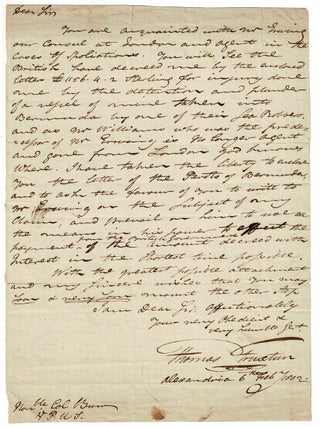 Dear Sir
You are acquainted with Mr Erving
our Consul at London and agent in the
Cases of Spoliations. You will see the
British have decreed me by the enclosed
letter £1156.4.2 sterling for injury done
me by the detention and plunder
of a vessel of mine taken into
Bermuda by one of their Sea Robbers,
and as Mr Williams who was the prede-
cessor of Mr Erving is no longer agent
and gone from London God knows
where. I have taken the liberty to enclose
you the letter of the of Bermuda,
and to ask the favour of you to write to
Mr Erving on the subject of my
claim, and prevail on him to use all
the means in his power to effect the
payment from the British Government of the amount decreed with
Interest in the shortest time possible.
With the greatest possible attachment
and my sincere wishes that you may
soon & very soon mount the other step
I am Dear Sir affectionately
Your very obedient &
very humble Svt
Thomas Truxtun
Alexandria 6th Feby 1802.
Honble Col. Burr
V P U S.